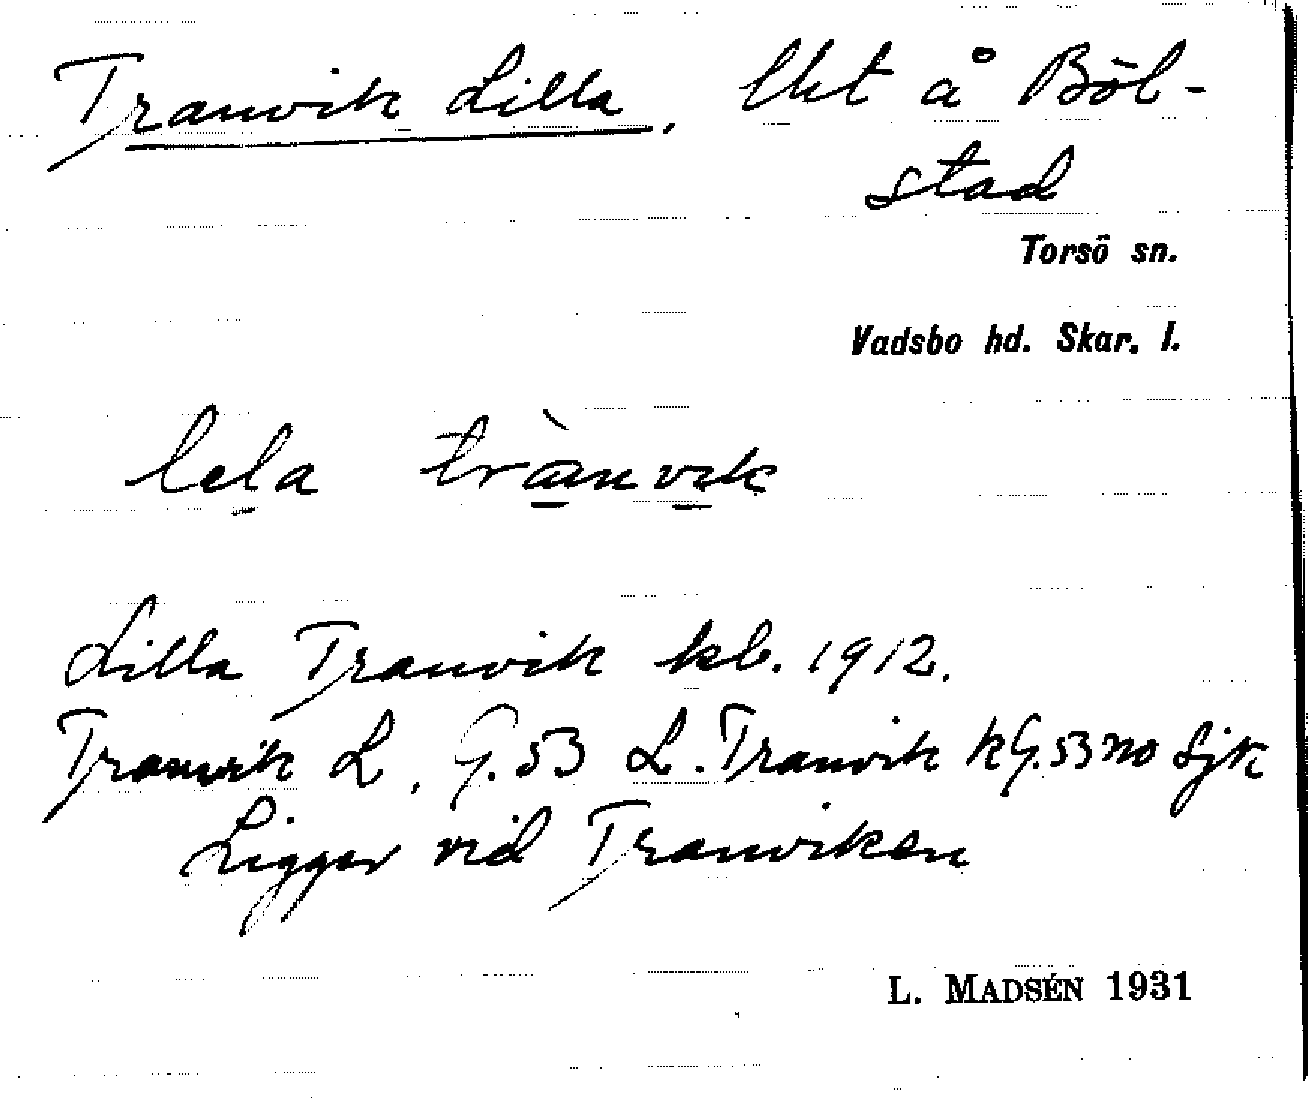 Tranvik Lilla, lht å Böl-
stad
Torsö sn.
Vadsbo hd. Skar. l.
lela trànvik
Lilla Tranvik kb. 1912.
Tranvik L, G. 53 L. Tranvik kG. 53 no Sjk
Ligger vid Tranviken
L. MADSÉN 1931